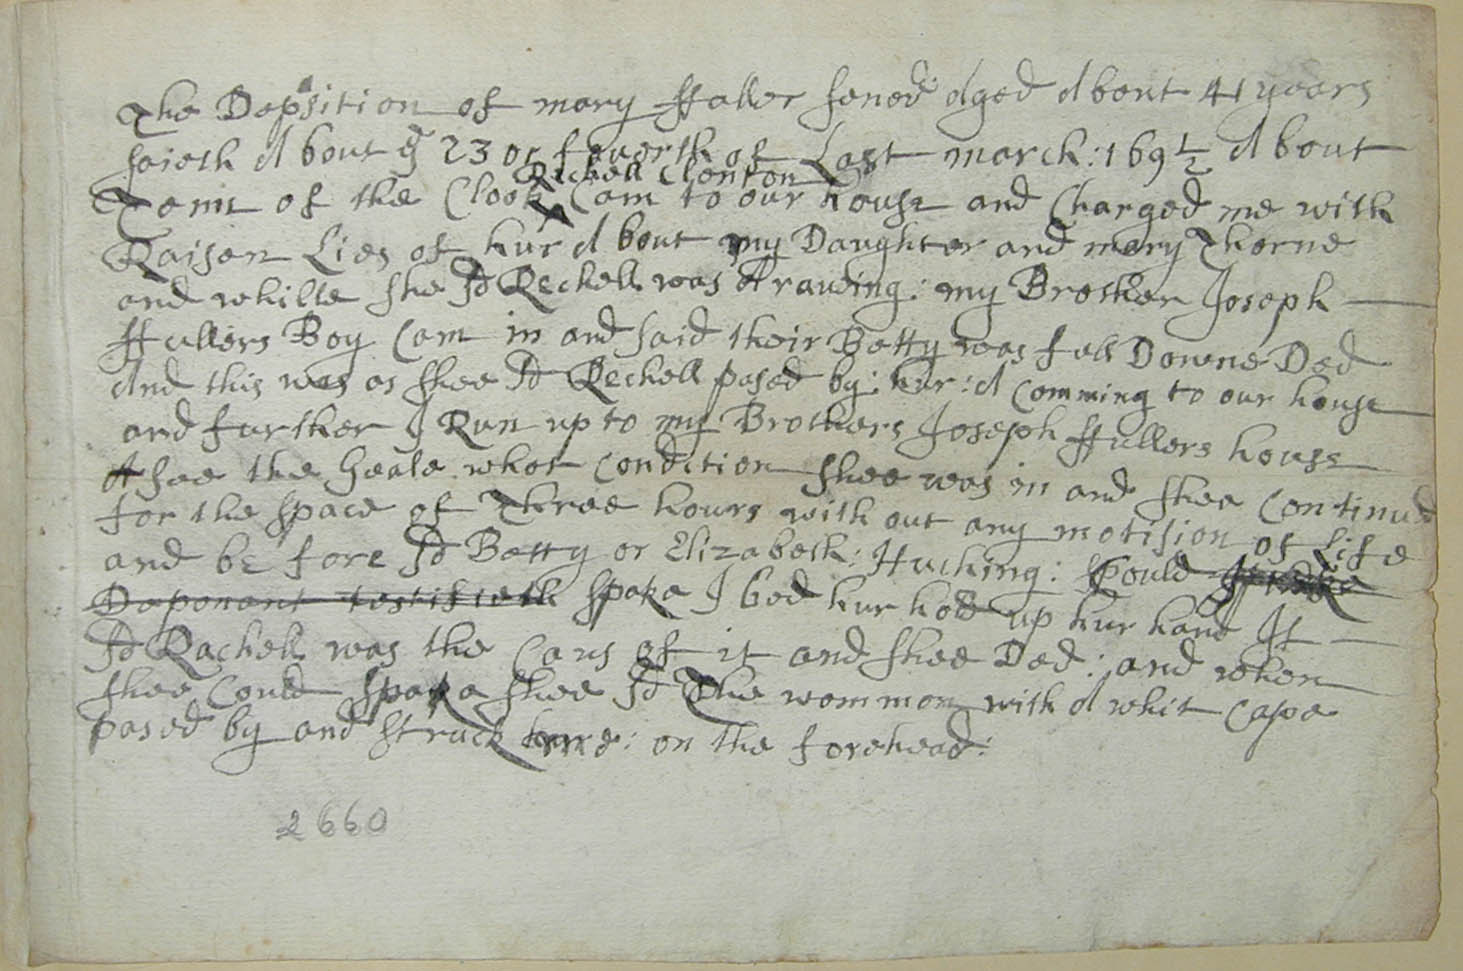 The Deposition of mary ffuller sener aged About 41 years
saieth About ye 23 or fouerth of Last march: 169½ About
Tenn of the Clook Rechell Clenton Cam to our house and Charged me with
Raisen Lies of hur About my Daughter and mery Thorne
and whille she sd Rechell was Araueing: my Brother Joseph
ffullers Boy Cam in and said their Betty was fell Downe Ded
And this was as shee sd Rechell pased by: hur: A Comming to our house
and further I Run up to my Brothers Joseph ffullers house
to see the Geale what Condition shee was in and shee Continued
for the space of Three hours with out any motision of Life
and be fore sd Betty or Elizabeth: Huching: Could
Deponant testifieth spake I bed hur hold up hur hand If
sd Rachell was the Caus of it and shee Ded: and when
shee Could Speake shee sd The womman with A whit Cape
pased by and struck hure: on the forehead:
2660